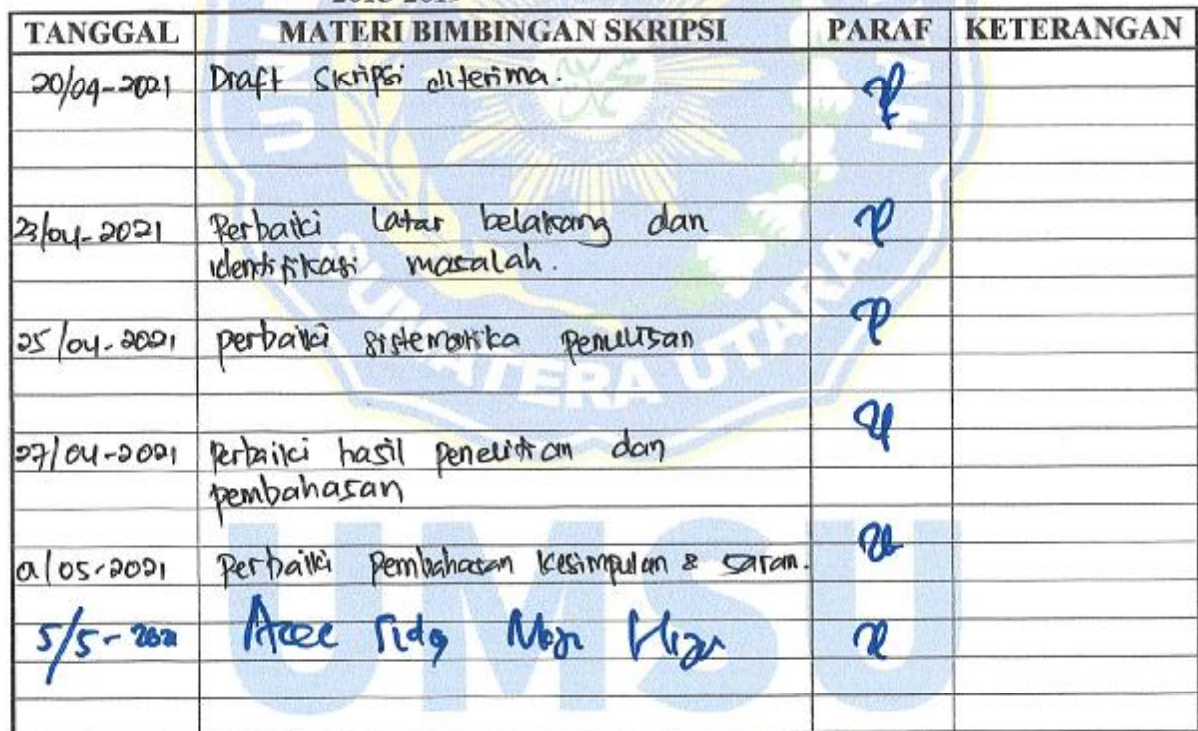 TANGGAL MATERI BIMBINGAN SKRIPSI PARAF KETERANGAN
20/04-2021 Draft Skripsi diterima.
23/04-2021 Perbaiki Latar belakang dan
identifikasi masalah.
25/04-2021 perbaiki sistematika penulisan
27/04-2021 Perbaiki hasil penelitian dan
pembahasan
01/05-2021 Perbaiki Pembahasan kesimpulan & saran.
5/5-2021 Acec
SUMATERA UTARA
UMSU